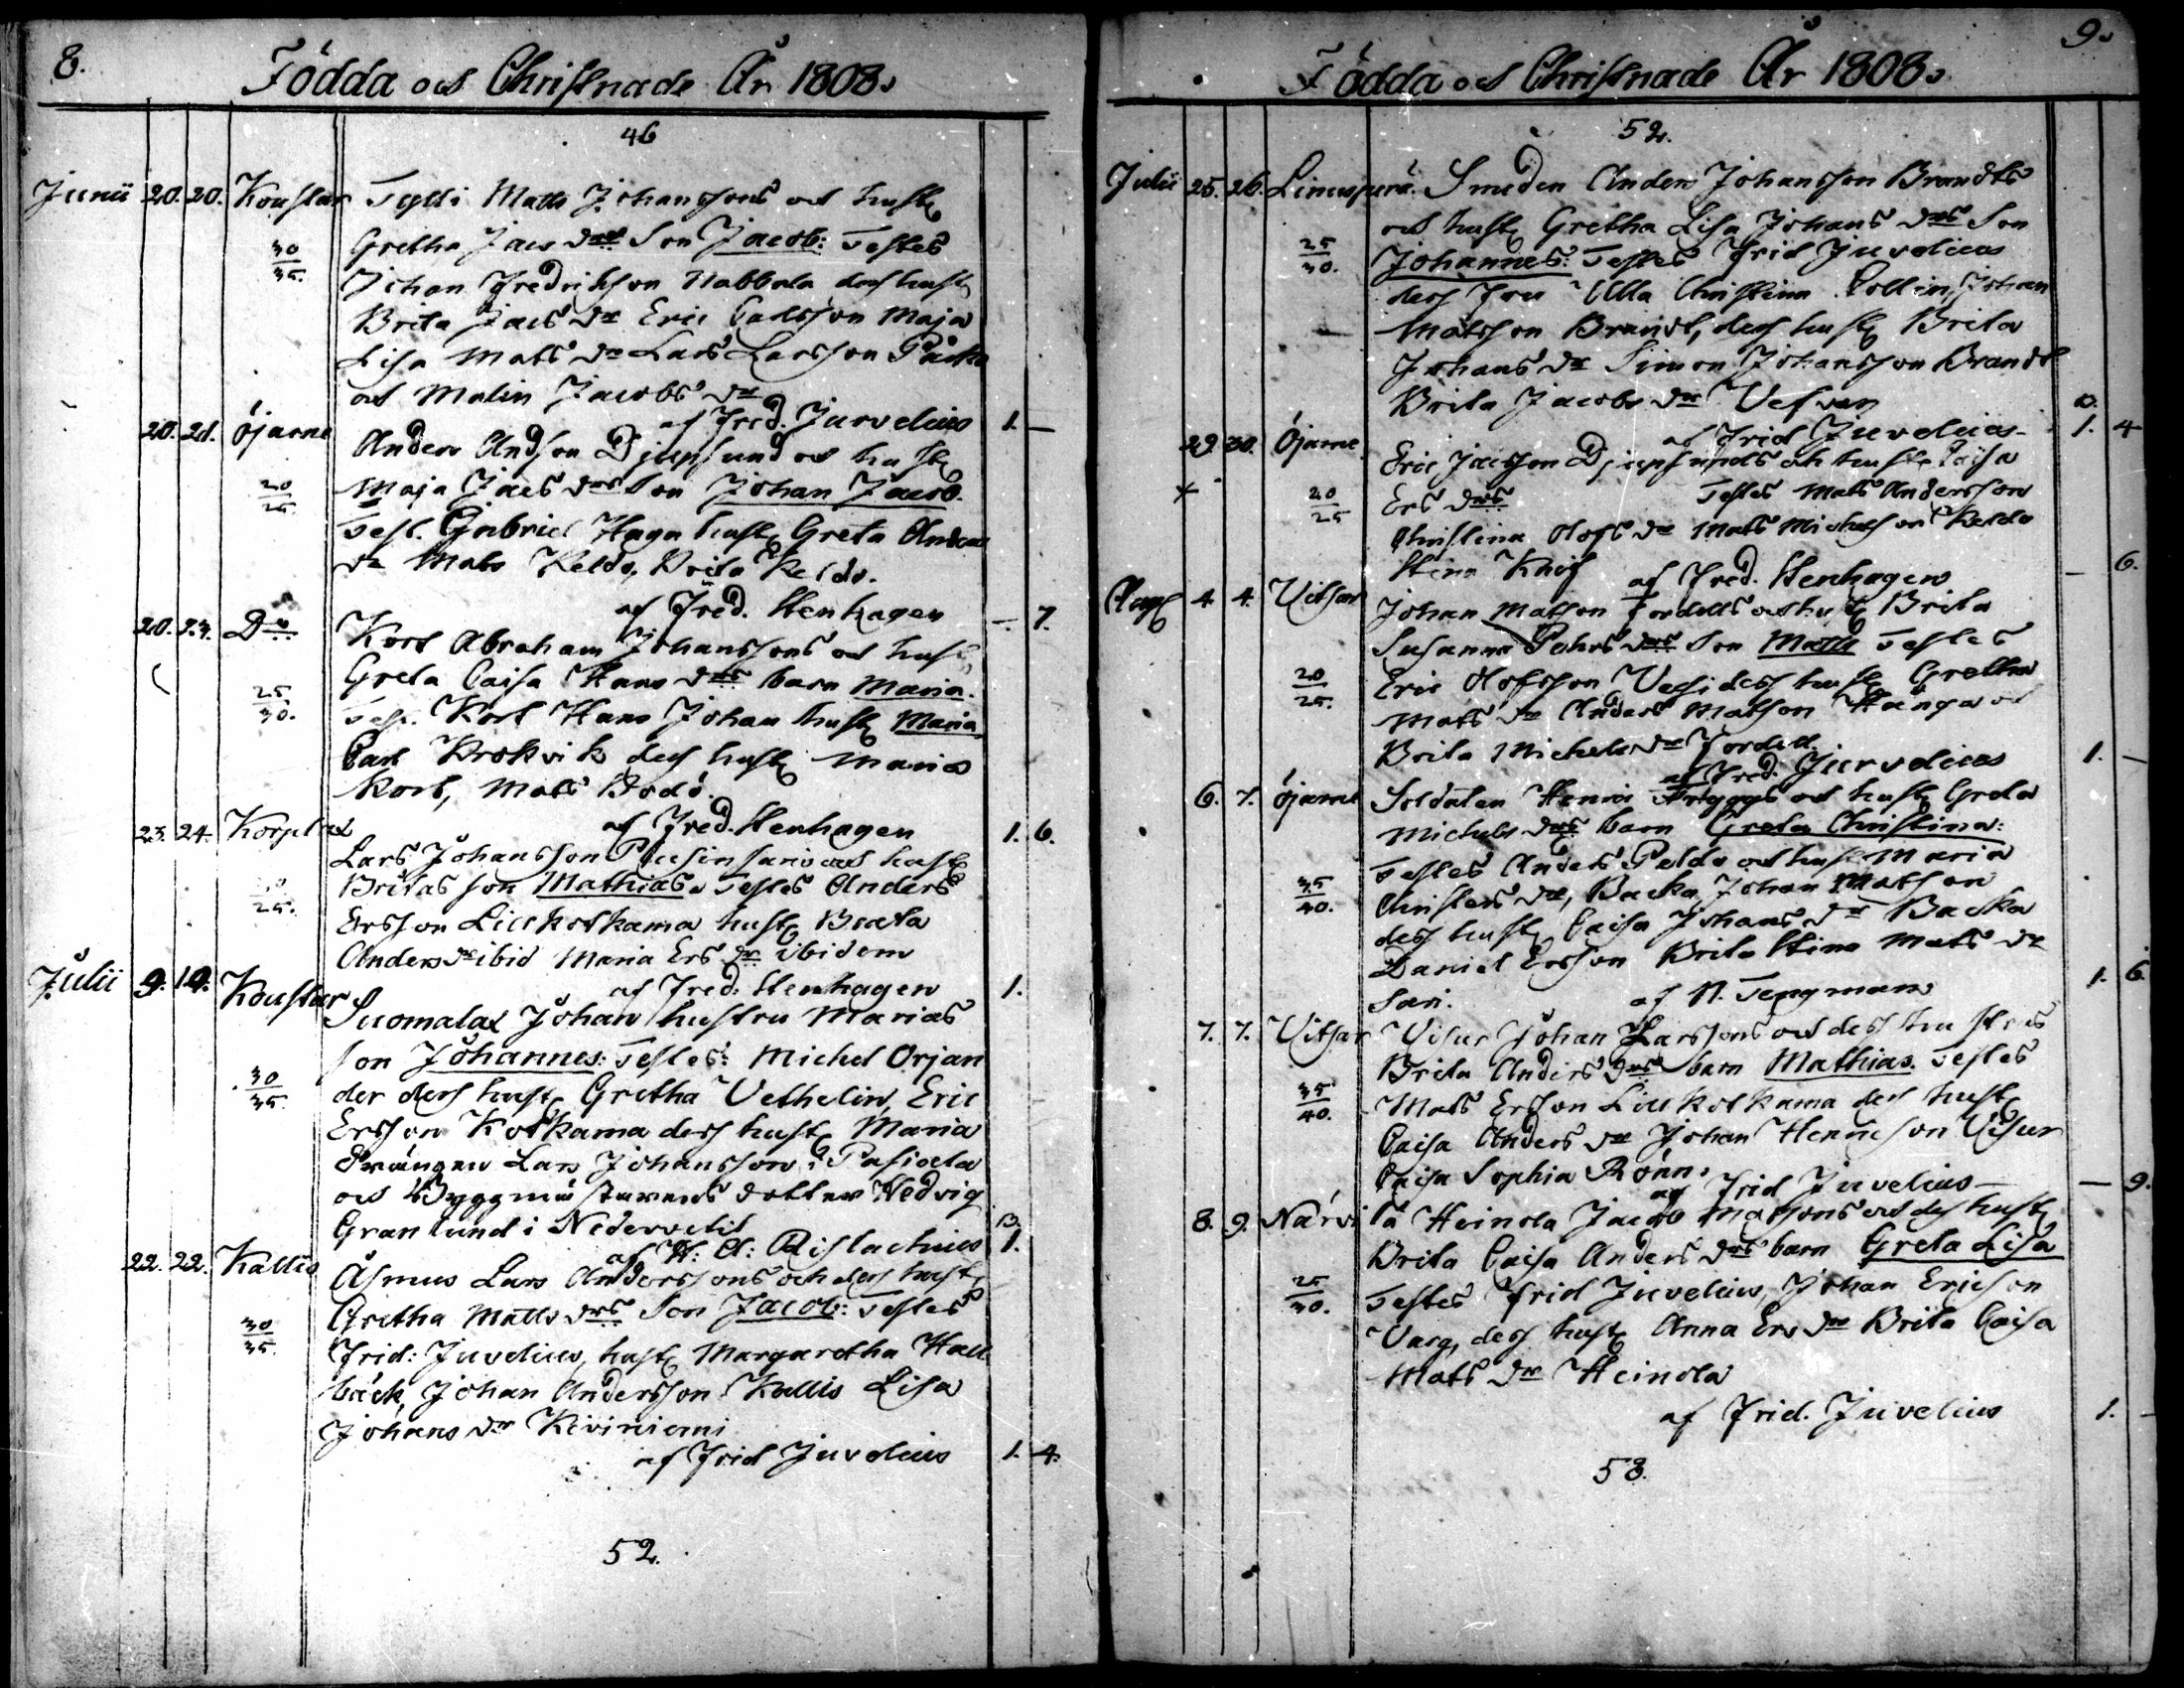 8.
Födda och Christnade År 1808.
46
Junii 20. 20. Koustar Tylli Matts Johanssons och hust
Gretha Jacs drs Son Jacob: Testes
30
35.
Johan Fredrichson Nabbala dess hust
Brita Jacs dr Eric Carlsson Maja
Lisa Mats dr Lars Larsson
och Malin Jacobs dr
af Fred. Jurvelius 1. —
20. 21. Öjarne Anders Andson Djupsund och hust
20
25.
Maja Jacs drs Son Johan Jacob.
Test. Gabriel Haga hust Greta Anders
dr Mats Keldo, Brita Keldo.
af Fred. Stenhagen —. 7.
20. 23. Do Kort Abraham Johanssons och hust
Greta Caisa Hans drs barn Maria.
25
30.
Test. Kort Hans Johan hust Maria
Carl Krokvik dess hust Maria
Kort, Mats Bodö.
af Fred. Stenhagen 1. 6.
23. 24. Lars Johansson och hust
25.
Britas son Mathias. Testes Anders
Ersson Lillkotkama hust Beata
Anders dr ibid Maria Ers dr ibidem
af Fred: Stenhagen 1.
Julii 9. 19. Koustar Suomalax Johan hustru Marias
son Johannes: Testes: Michel Orjan
30
35.
der dess hust Gretha Vethelin, Eric
Ersson Kotkama dess hust Maria
Drängen Lars Johansson i Pasioela
och Byggmästarens dotter Hedvig
Granlund i Nedervetil 13.
af H: A: Rislachius 1.
22. 22. Kallis Åsmus Lars Anderssons och dess hust
Gretha Matts drs Son Jacob: Testes
30
35.
Frid: Juvelius, hust Margaretha Hall
bäck, Johan Andersson Kallis Lisa
Johans dr Kiviniemi
af Frid Juvelius 1. 4.
52.
9.
Födda och Christnade År 1808.
52.
Julii 25. 26. Smeden Anders Johansson Brandts
och hust Gretha Lisa Johans drs Son
25
30.
Johannes: Testes Frid Juvelius
dess Fru Ulla Christina Collin, Johan
Matsson Brandt, dess hust Brita
Johans dr Simon Johansson Brandt
Brita Jacobs dr
10.
af Frid Juvelius 1. 4
29. 30. Öjarne Eric Jacsson Djupsunds och hust Caisa
20
25
Ers drs Testes Mats Andersson
Christina Olofs dr Mats Michelsson Keldo
Stina Knif
af Fred. Stenhagen — 6.
Aug 4. 4. Vitsar Johan Matson Fordells och hust Brita
Susanna drs Son Matts Testes
20
25.
Eric Olofsson dess hust Gretha
Mats dr Anders Matson Hänga och
Brita Michels dr Fordell.
af Fred. Jurvelius 1. —
6. 7. Öjarne Soldaten Henric Tryggs och hust Greta
Michels drs barn Greta Christina:
35
40.
Testes Anders och hust Maria
Christers dr, Backa Johan Matsson
dess hust Caisa Johans dr Backa
Daniel Ersson Brita Stina Mats dr
Sari.
af N. Tengman 1. 6.
7. 7. Vitsar Visur Johan Larssons och dess hustrus
Brita Anders drs barn Mathias. Testes
35
40.
Mats Ersson Lillkotkama dess hust
Caisa Anders dr Johan Henricson Visur
Caisa Sophia Rönn.
af Frid Juvelius — 9.
8. 9. Närvi Lä Heinola Jacob Matsons och dess hust
Brita Caisa Anders drs barn Greta Lisa
25
30.
Testes Frid Juvelius, Johan Ericson
Varg, dess hust Anna Ers dr Brita Caisa
Mats dr Heinola
af Frid. Juvelius 1. —
58.